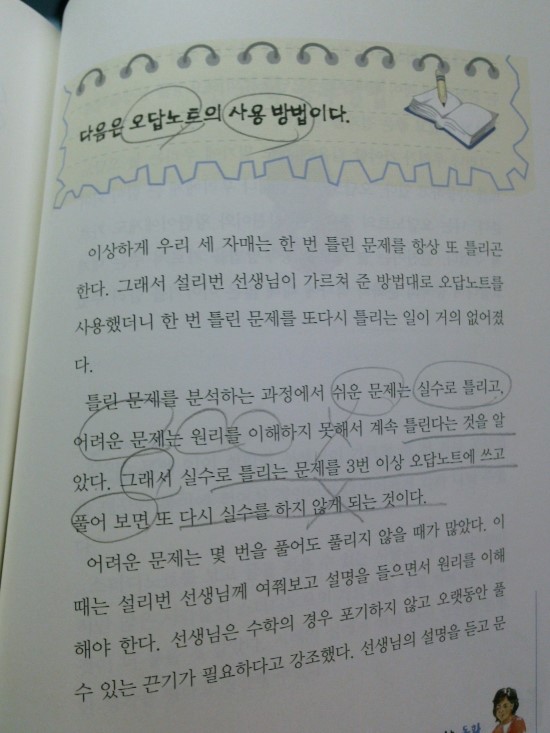 다음은 오답노트의 사용 방법이다.
이상하게 우리 세 자매는 한 번 틀린 문제를 항상 또 틀리곤
한다. 그래서 설리번 선생님이 가르쳐 준 방법대로 오답노트를
사용했더니 한 번 틀린 문제를 또다시 틀리는 일이 거의 없어졌
다.
틀린 문제를 분석하는 과정에서 쉬운 문제는 실수로 틀리고,
어려운 문제는 원리를 이해하지 못해서 계속 틀린다는 것을 알
았다. 그래서 실수로 틀리는 문제를 3번 이상 오답노트에 쓰고
풀어 보면 또 다시 실수를 하지 않게 되는 것이다.
어려운 문제는 몇 번을 풀어도 풀리지 않을 때가 많았다. 이
때는 설리번 선생님께 여쭤보고 설명을 들으면서 원리를 이해
해야 한다. 선생님은 수학의 경우 포기하지 않고 오랫동안 풀
수 있는 끈기가 필요하다고 강조했다. 선생님의 설명을 듣고 문